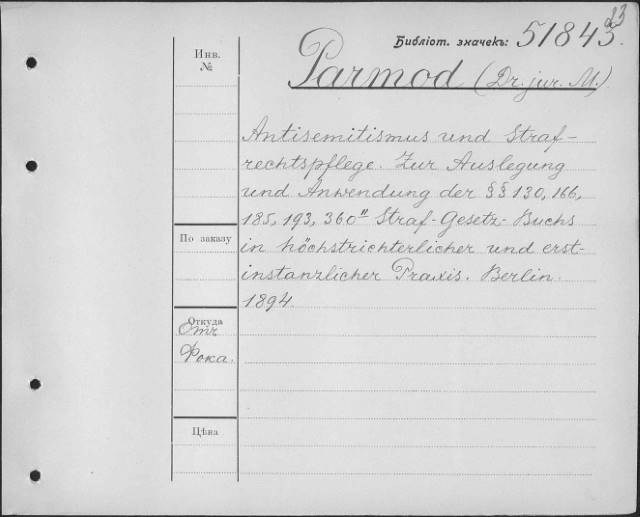 23
Библіот. значекъ: 51843
Инв.
№
Parmod (Dr. jur. M.)
Antisemitismus und Straf-
rechtspflege. Zur Auslegung
und Anwendung der §§ 130, 166,
185, 193, 360" Straf-Gesetz-Buchs
in höchstrichterlicher und erst-
instanzlicher Praxis. Berlin.
1894
По заказу
Откуда
Отъ
Фока.
Цѣна